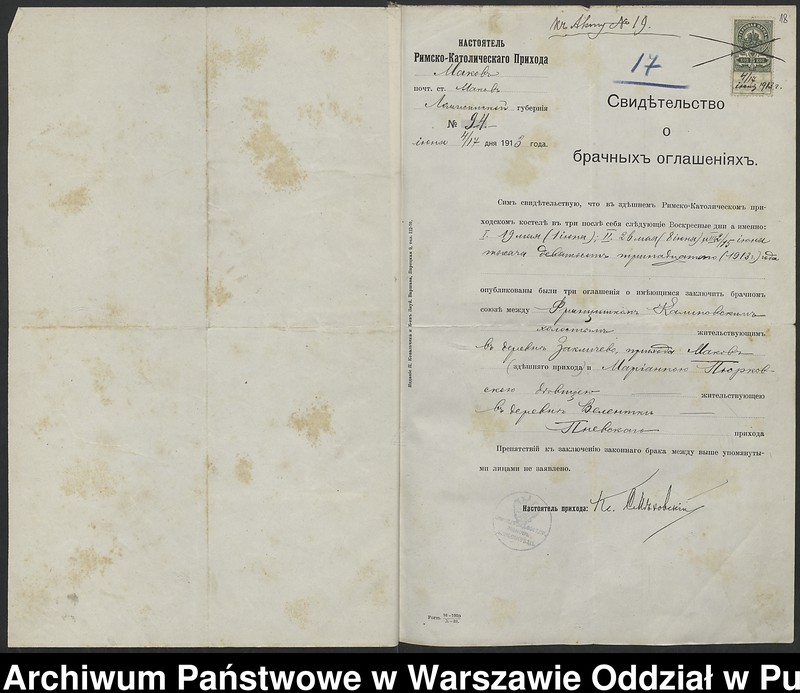 къ Акту № 19.
18
17
НАСТОЯТЕЛЬ
Римско-Католическаго Прихода
Маковъ
почт. ст. Маковъ
Ломжинской губернія
№ 94
іюня 4/17 дня 1913 года.
4/17 1913 г.
Свидѣтельство
о
брачныхъ оглашеніяхъ.
Симъ свидѣтельствую, что въ здѣшнемъ Римско-Католическомъ при-
ходскомъ костелѣ въ три послѣ себя слѣдующіе Воскресные дни а именно:
I. 19 мая (1 іюня); II. 26 мая (8 іюня) и III 2/15 іюня
тысяча девятьсотъ тринадцатаго (1913 г.) года
опубликованы были три оглашенія о имѣющимся заключить брачномъ
союзѣ между Францишкомъ Калиновскимъ
холостымъ жительствующимъ
въ деревнѣ Закличево, прихода Маковъ
(здѣшняго прихода) и Маріанною Пюрков-
скою дѣвицею жительствующею
въ деревнѣ Велентки
Пневскаго прихода
Препятствій къ заключенію законнаго брака между выше упомянуты-
ми лицами не заявлено.
Настоятель прихода: Кс.
Archiwum Państwowe w Warszawie Oddział w Pu